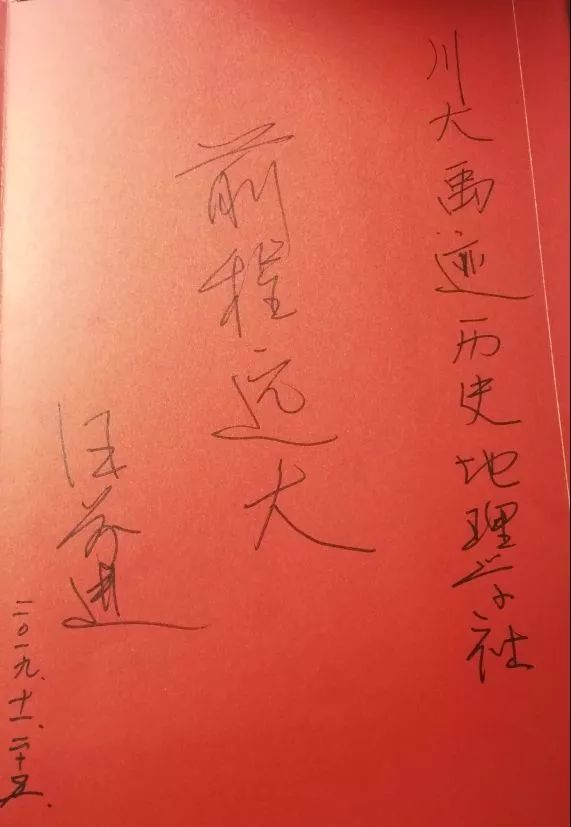 川大禹迹历史地理学社
前程远大
汪前进
二〇一九.十一.二十五.